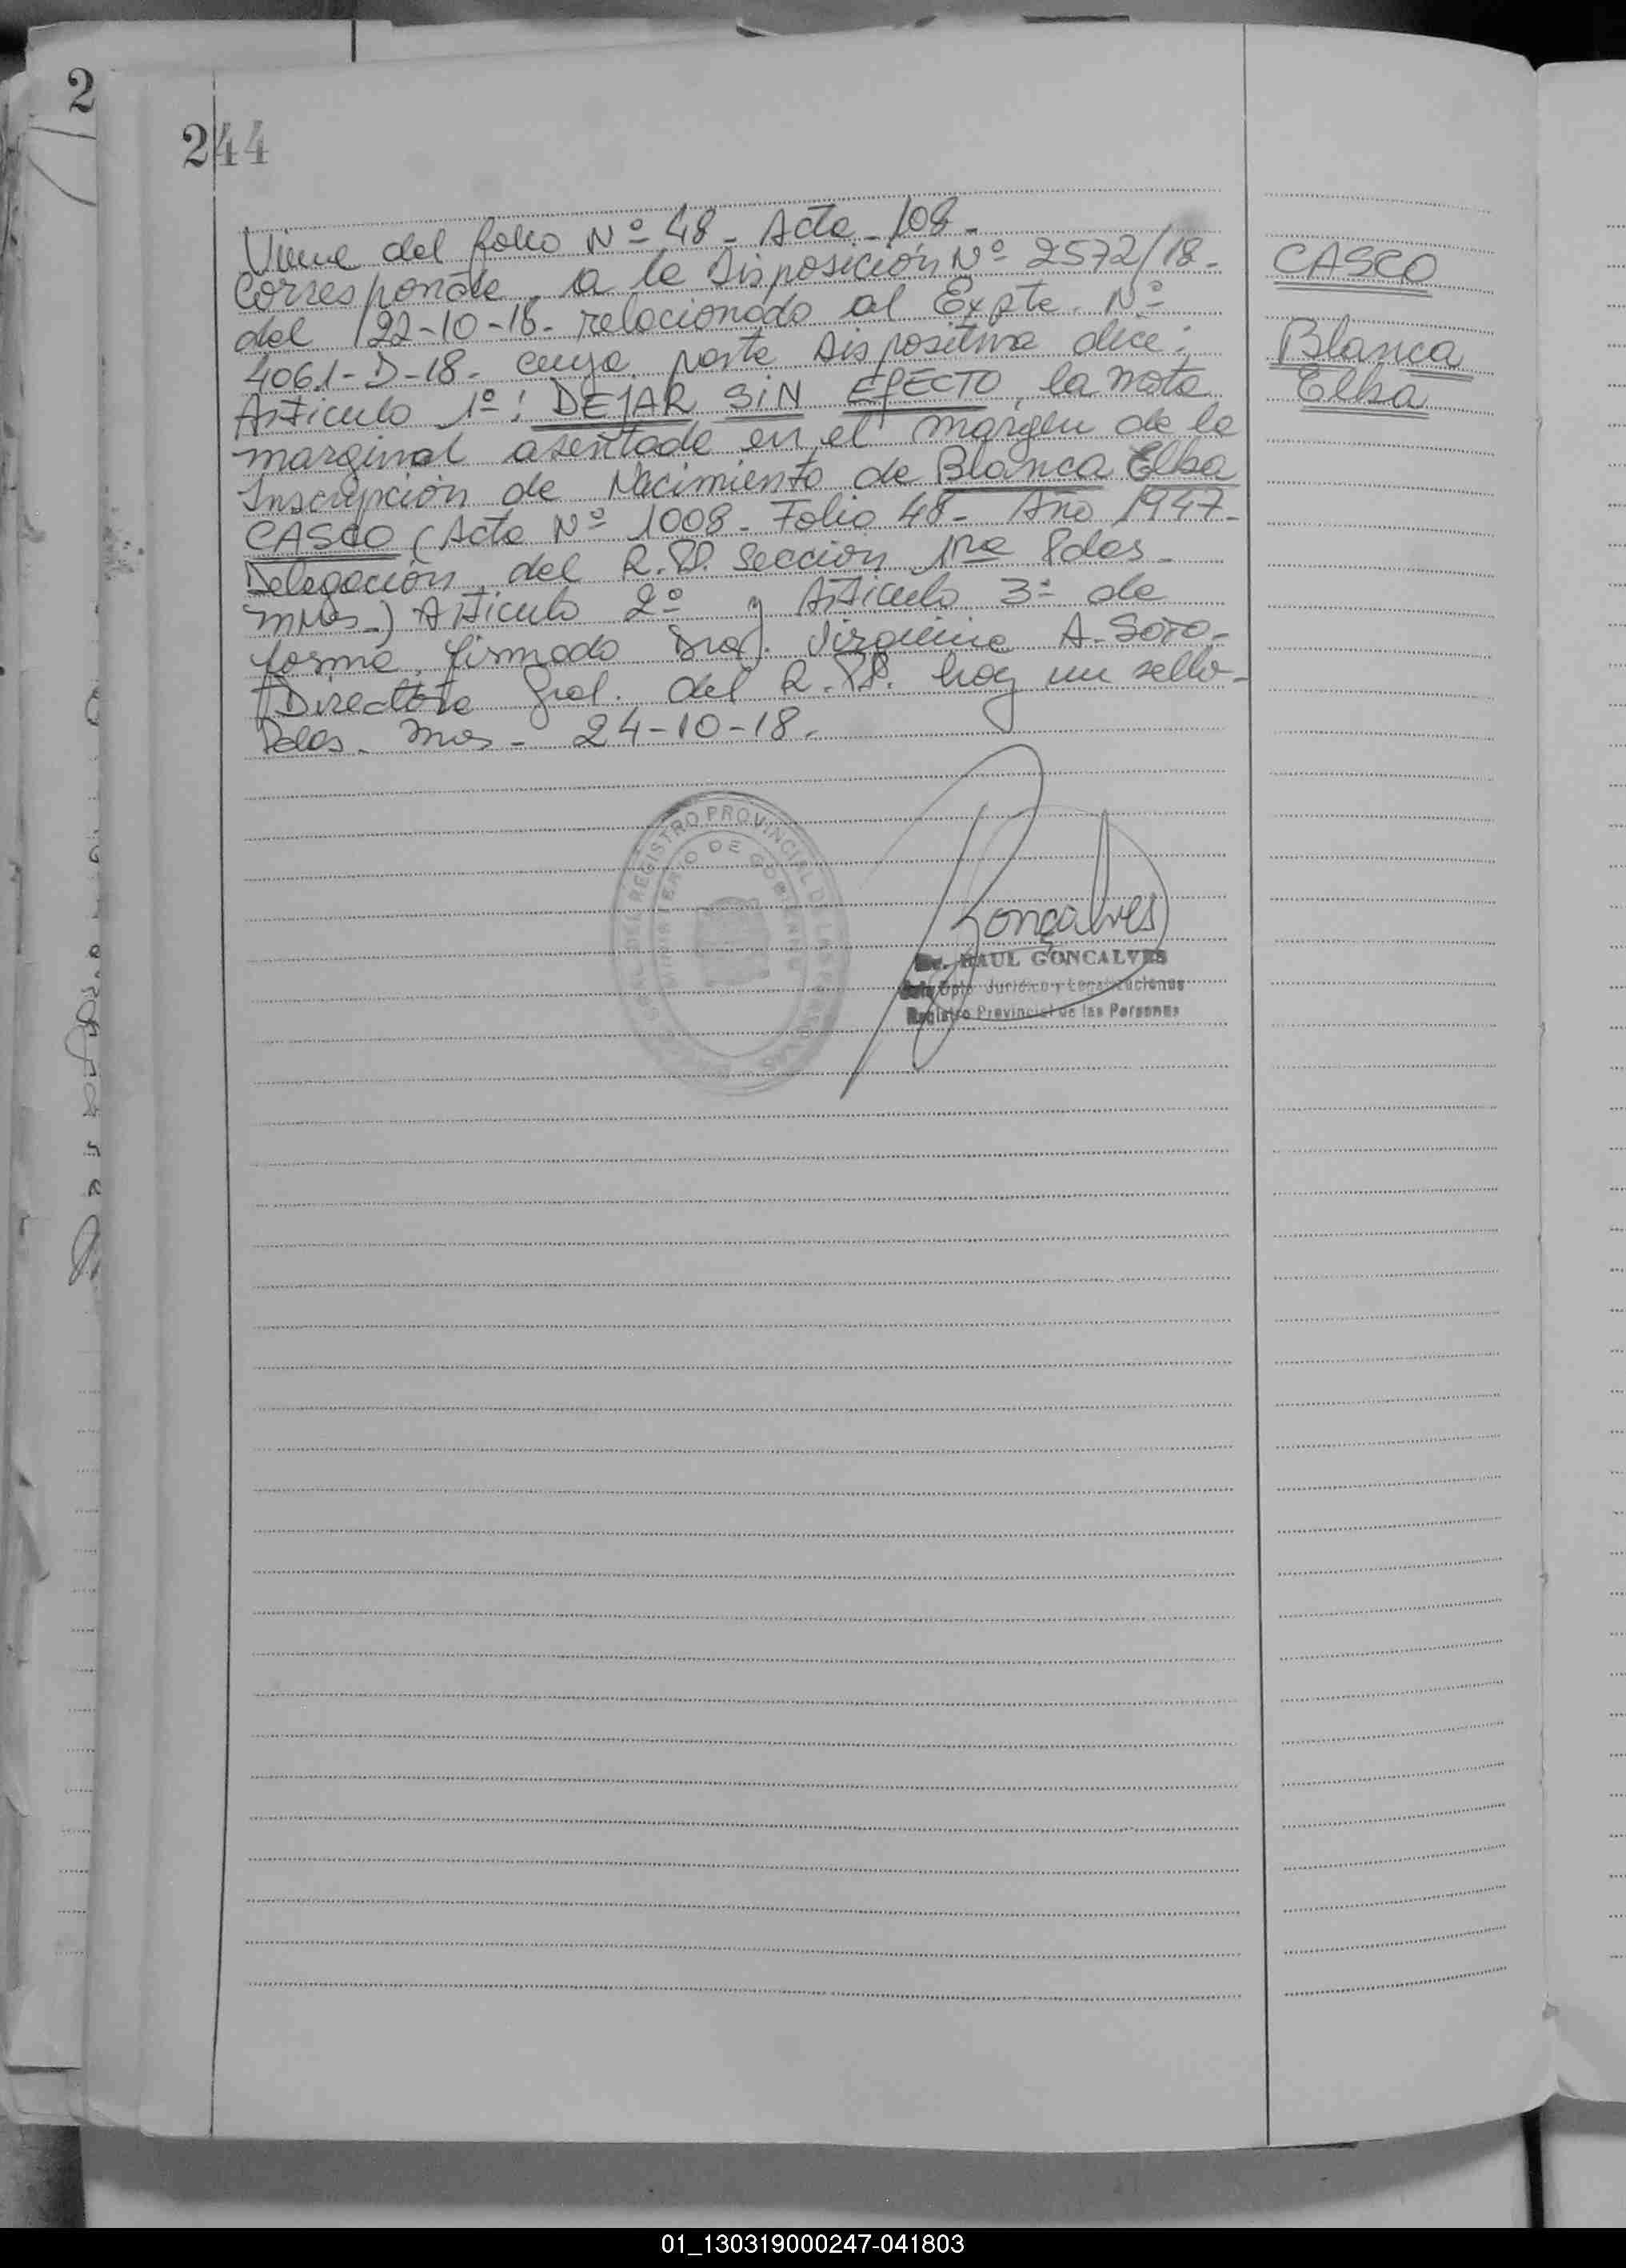 2
244
Viene del folio Nº 48 - Acta - 108 -
Corresponde a la Disposición Nº 2572/18 -
del 22-10-18 - relacionado al Expte. Nº
4061-D-18 - cuya parte dispositiva dice:
Artículo 1º: DEJAR SIN EFECTO, la nota
marginal asentada en el margen de la
Inscripción de Nacimiento de Blanca Elba
CASCO (Acta Nº 1008 - Folio 48 - Año 1947 -
Delegación del R.P.P. Sección 1ra Pdas -
Mnes -) Artículo 2º y Artículo 3º de
forma, firmado Dra. Virginia A. Soto -
Directora Gral. del R.P.P. hay un sello -
Pdas. Mnes - 24-10-18.
CASCO
Blanca
Elba
REGISTRO PROVINCIAL DE LAS PERSONAS
MINISTERIO DE GOBIERNO
Gonçalves
Dr. RAUL GONCALVES
Jefe Dpto. Jurídico y Legalizaciones
Registro Provincial de las Personas
01_130319000247-041803